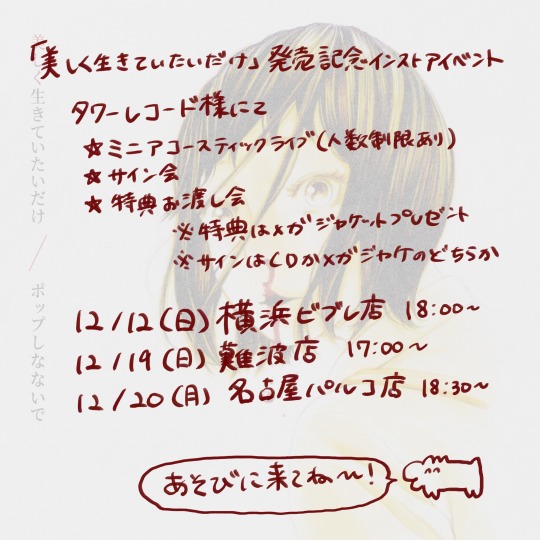 「美しく生きていたいだけ」発売記念インストアイベント
タワーレコード様にて
☆ミニアコースティックライブ(人数制限あり)
☆サイン会
☆特典お渡し会
※特典はメガジャケットプレゼント
※サインはCDかメガジャケのどちらか
12/12(日)横浜ビブレ店 18:00〜
12/19(日)難波店 17:00〜
12/20(月)名古屋パルコ店 18:30〜
あそびに来てね〜!
美しく生きていたいだけ / ポップしなないで